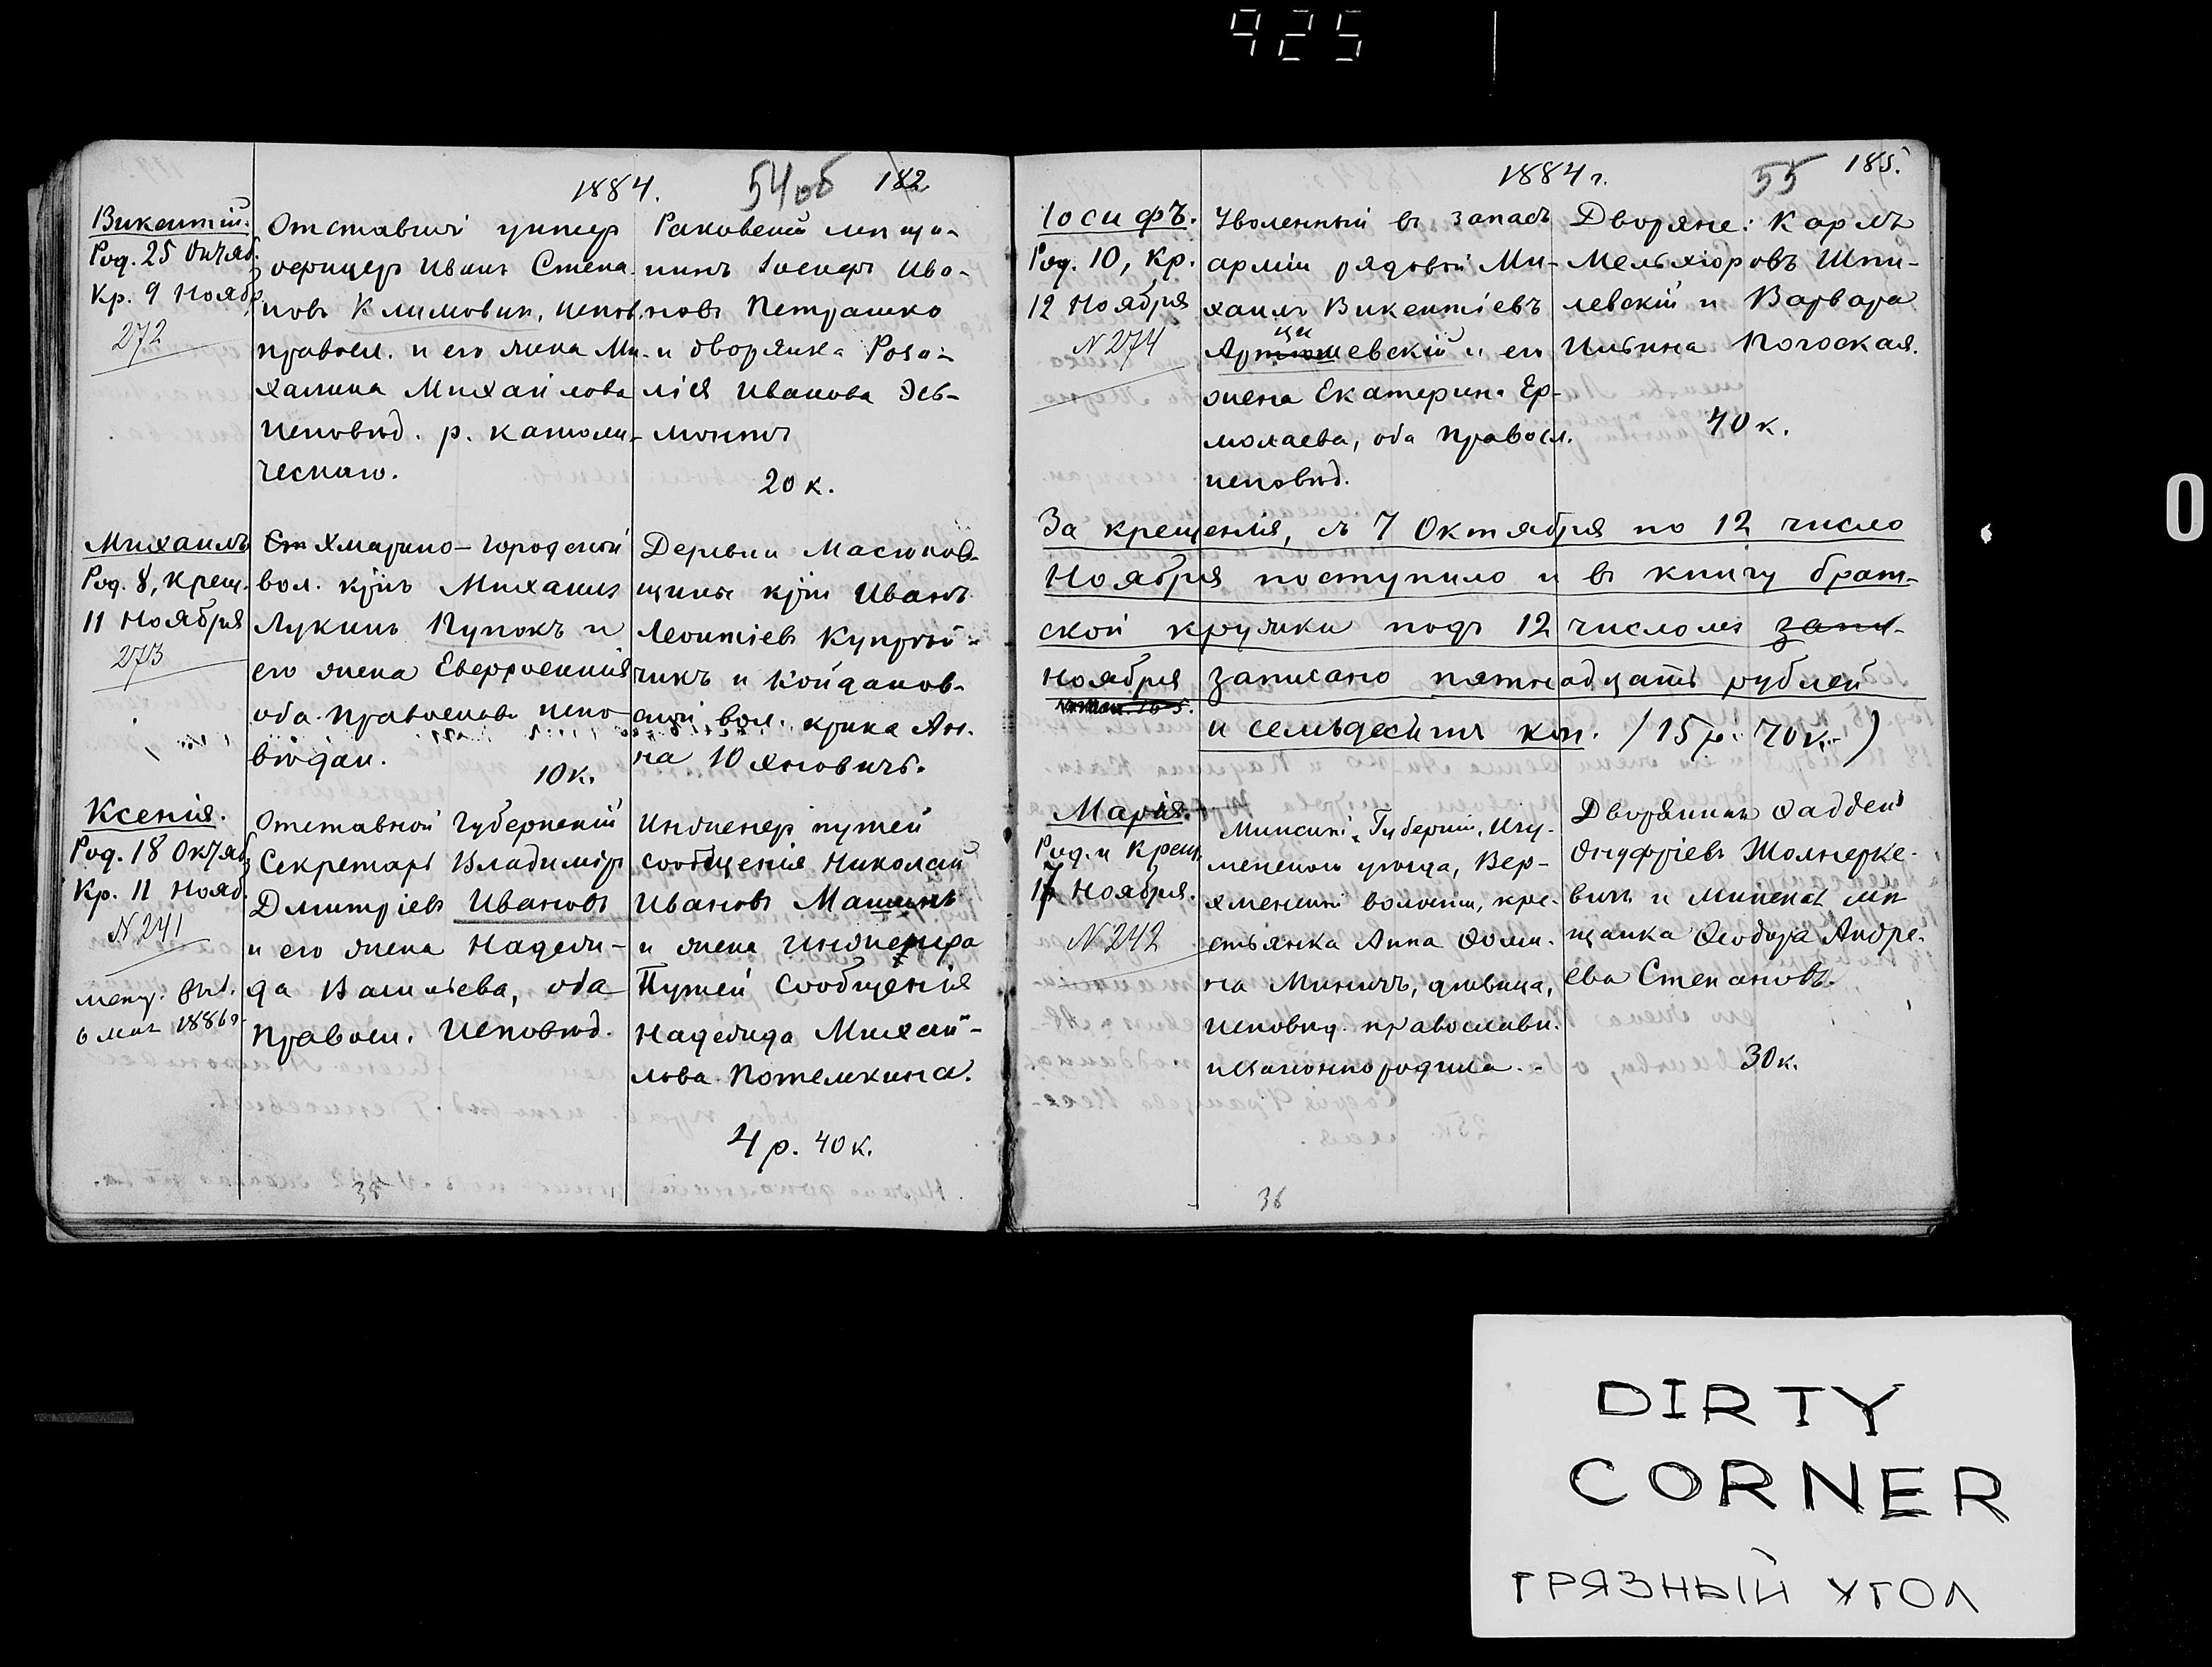 925
1884.
54об
182
Викентій.
Род. 25 Октяб.
Кр. 9 Ноябр.
272
Отставный унтер
офицеръ Иванъ Степа-
новъ Климовичъ, испов.
правосл. и его жена Ми-
халина Михайлова
исповѣд. р. католи-
ческаго.
Раковскій мѣща-
нинъ Іосифъ Ива-
новъ Петрашко
и дворянка Роза-
лія Иванова Эсь-
монтъ
20 к.
Михаилъ
Род. 8, Крещ.
11 Ноября
273
Хмарино-Городской
вол. кр̃нъ Михаилъ
Лукинъ Пупокъ и
его жена Евфросинія
оба православн. испо-
вѣдан.
10 к.
Деревни Масюков-
щины кр̃нъ Иванъ
Леонтіевъ Купрей-
чикъ и Койданов-
ской вол. кр̃нка Ан-
на Юхновичъ.
Ксенія.
Род. 18 Октяб.
Кр. 11 Нояб.
№ 241
метр. выд.
6 мая 1886 г.
Отставной Губернскій
Секретарь Владиміръ
Дмитріевъ Ивановъ
и его жена Надеж-
да Васильева, оба
правосл. исповѣд.
Инженеръ путей
сообщенія Николай
Ивановъ Машинъ
и жена инженера
Путей Сообщенія
Надежда Михай-
лова Потемкина.
4 р. 40 к.
35
1884 г.
55
185.
Іосифъ.
Род. 10, Кр.
12 Ноября
№ 274
Уволенный въ запасъ
арміи рядовой Ми-
хаилъ Викентіевъ
ци
Артюшевскій и его
жена Екатерина Ер-
молаева, оба правосл.
исповѣд.
Дворяне: Карлъ
Мельхіоровъ Шпи-
левскій и Варвара
Ильина Рогоская.
40 к.
За крещенія, съ 7 Октября по 12 число
Ноября поступило и въ книгу брат-
ской кружки подъ 12 числомъ запи-
Ноября записано пятнадцать рублей
и семьдесятъ коп. (15 р. 70 к.)
Марія.
Род. и Крещ.
17 Ноября.
№ 242
Минской Губерніи, Игу-
менскаго уѣзда, Вер-
хменской волости, кре-
стьянка Анна Фоми-
на Миничъ, дѣвица,
исповѣд. православн.
незаконно родила.
Дворянинъ Фаддей
Онуфріевъ Жолнерке-
вичъ и Минская мѣ-
щанка Ѳеодора Андре-
ева Степановъ.
30 к.
36
0
DIRTY
CORNER
ГРЯЗНЫЙ УГОЛ